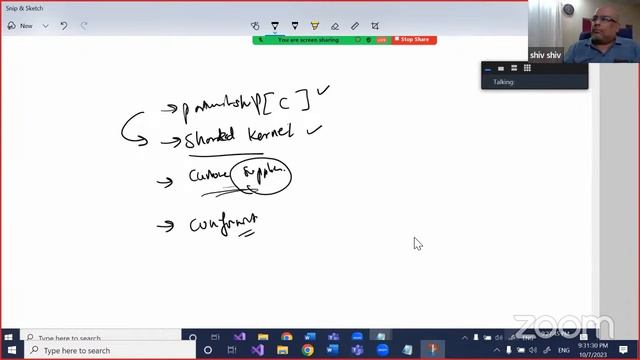 Snip & Sketch
New
You are screen sharing Stop Share
shiv shiv
Talking:
→ partnership [ C ] ✓
→ Shared Kernel ✓
→ Customer Supplier
→ conformist
zoom
Type here to search
9:31:30 PM
Type here to search
10/7/2023